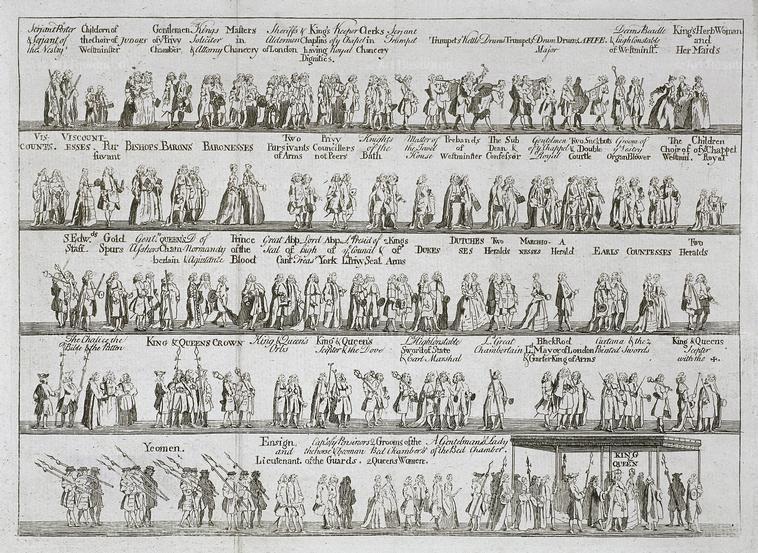 Serjant Porter Children of Gentlemen Kings Masters Sheriffs & King's Keeper Clerks Serjant Deans Beadle King's Herb Woman
& Serjant of the Choir of JUDGES of Privy Soliciter in Aldermen Chaplins of y Chapel in Trumpet Trumpets Kettle Drums Trumpets Drum Drums A FIFE & high Constable and
the Vestry Westminster Chamber & Attorny Chancery of London having Royal Chancery Major of Westminst.r Her Maids
Dignities.
VIS- VISCOUNT- Two Privy Knights Master of Prebands The Sub Gentelmen Two Suckbuts Groom of The Children
COUNTS. ESSES. Pur BISHOPS. BARONS BARONESSES Pursivants Councillers of the the Jewel of Dean & of y Chappel & Double y Vestry Choir of of y Chappel
suivant of Arms not Peers Bath House Westminster Confessor Royal Courtle Organ Blower Westmin. Royal
S.t Edw.ds Gold Gent.n QUEEN'S D. of Prince Great Abp Lord Abp L.d Presid of 2 Kings DUTCHES Two MARCHIO- A Two
Staff. Spurs Usher Cham- Normandy of the Seal of high of y Council & of DUKES SES Heralds NESSES Herald. EARLS COUNTESSES Heralds
berlain & Aquistance Blood Cant. Treas York L. Privy Seal Arms
The Chalice the KING & QUEENS CROWN King & Queen's King & Queen's L.d High Constable L.d Great Black Rod Curtana & the 2 King & Queens
Bible & the Patton Orbs Scepter & the Dove Sword of State Chamberlain L.d Mayor of London Pointed Swords Scepter
& Earl Marshal & Garter King of Arms with the +.
Yeomen. Ensign Cap.t of y Pensioners 2 Grooms of the A Gentelman & Lady KING
and the horse & Yeoman Bed Chamber & of the Bed Chamber. QUEEN
Lieutenant of the Guards. 2 Queens Women.